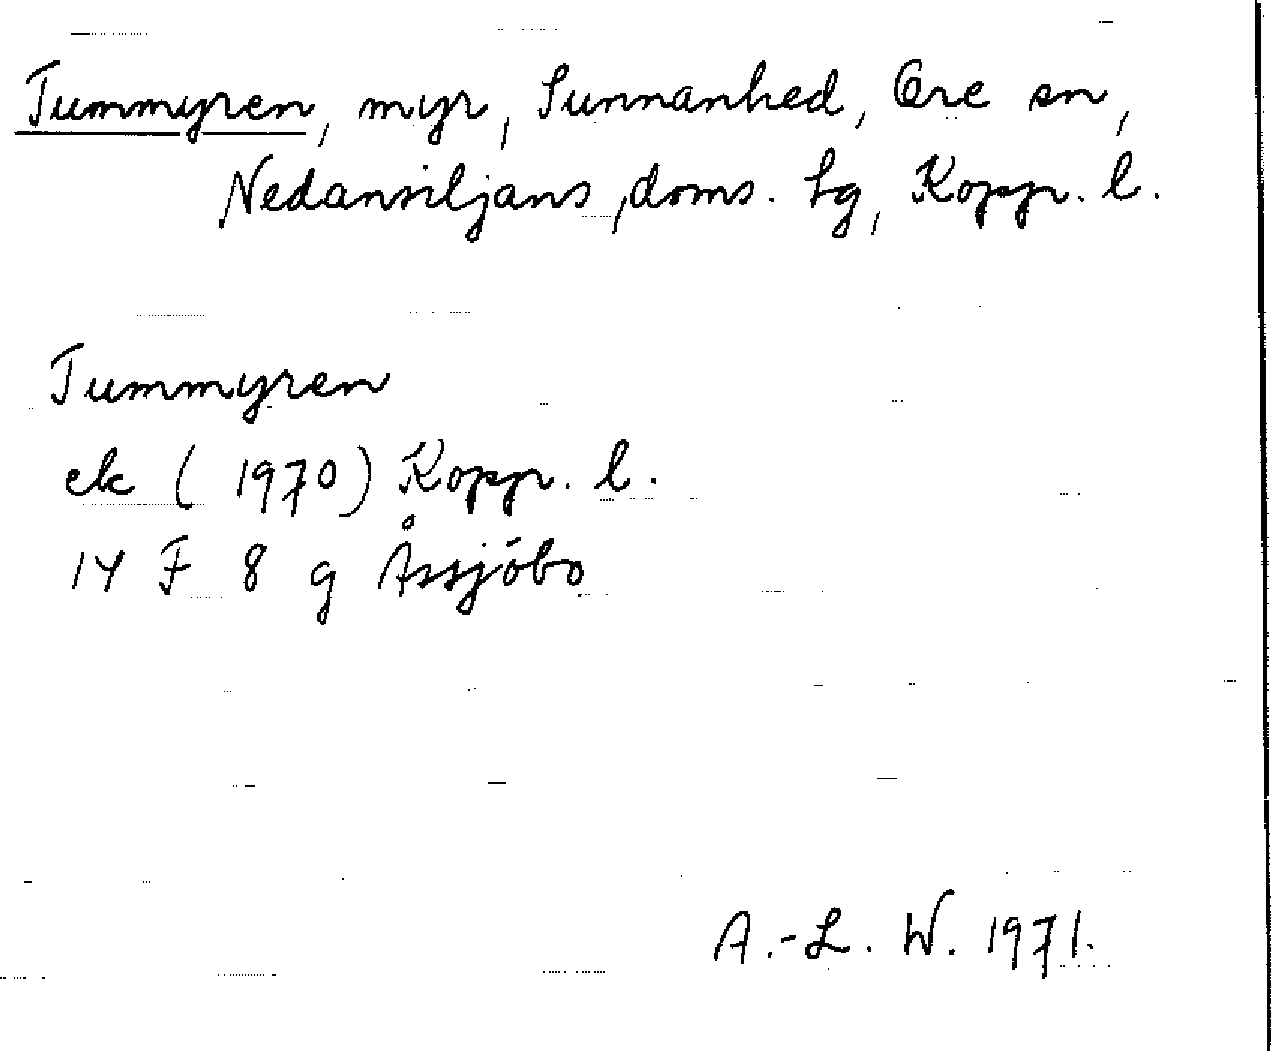 Tummyren, myr, Sunnanhed, Ore sn,
Nedansiljans, doms. hg, Koppr. l.
Tummyren
ek (1970) Koppr. l.
14 F 8 g Åssjöbo
A.-L. W. 1971.